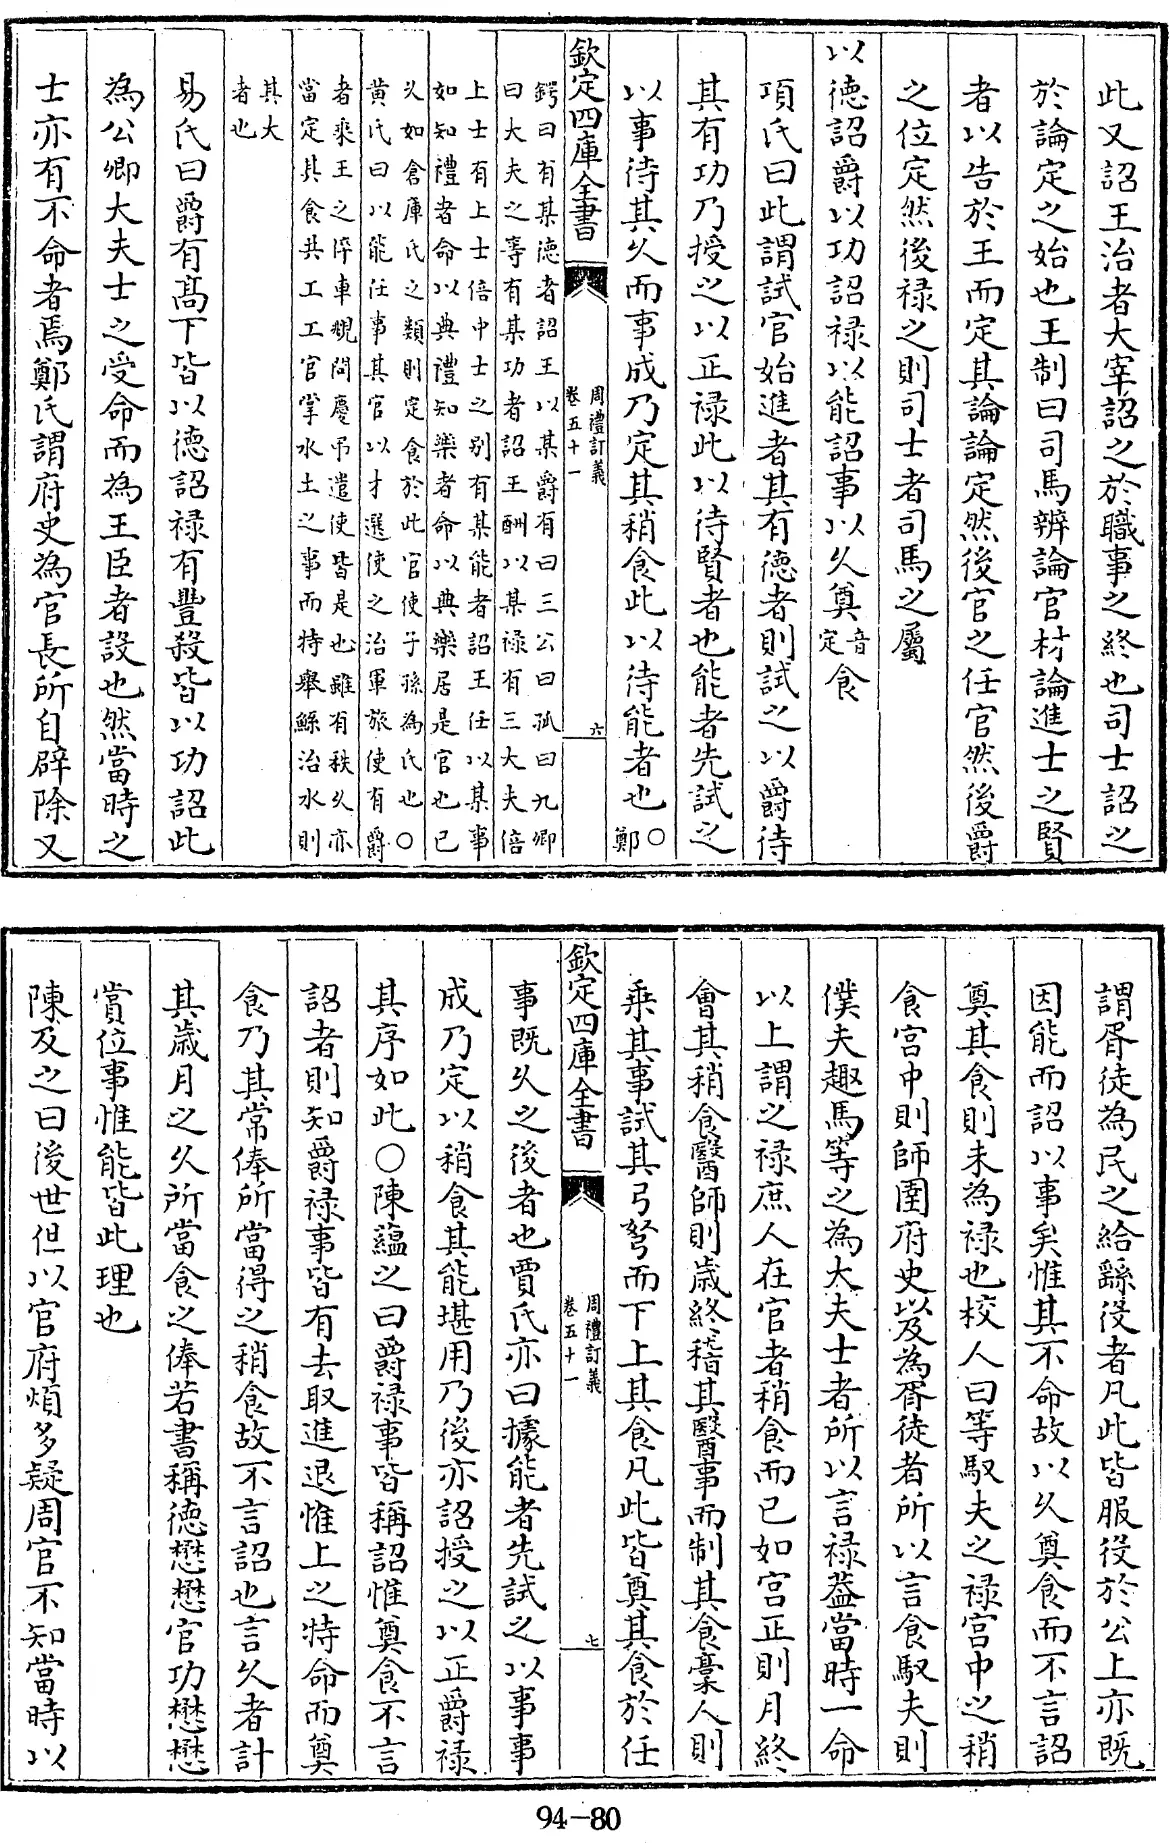 此又詔王治者大宰詔之於職事之終也司士詔之
於論定之始也王制曰司馬辨論官材論進士之賢
者以告於王而定其論論定然後官之任官然後爵
之位定然後祿之則司士者司馬之屬
以德詔爵以功詔祿以能詔事以久奠音定食
項氏曰此謂試官始進者其有德者則試之以爵待
其有功乃授之以正祿此以待賢者也能者先試之
以事待其久而事成乃定其稍食此以待能者也○鄭
欽定四庫全書
周禮訂義
卷五十一
六
鍔曰有某德者詔王以某爵有曰三公曰孤曰九卿
曰大夫之等有某功者詔王酬以某祿有三大夫倍
上士有上士倍中士之别有某能者詔王任以某事
如知禮者命以典禮知樂者命以典樂居是官也已
久如倉庫氏之類則定食於此官使子孫為氏也○
黄氏曰以能任事其官以才選使之治軍旅使有爵
者乘王之倅車覜問慶弔遣使皆是也雖有秩久亦
當定其食共工工官掌水土之事而特舉鯀治水則
其大
者也
易氏曰爵有髙下皆以德詔祿有豐殺皆以功詔此
為公卿大夫士之受命而為王臣者設也然當時之
士亦有不命者焉鄭氏謂府史為官長所自辟除又
謂胥徒為民之給繇役者凡此皆服役於公上亦既
因能而詔以事矣惟其不命故以久奠食而不言詔
奠其食則未為祿也校人曰等馭夫之祿宫中之稍
食宫中則師圉府史以及為胥徒者所以言食馭夫則
僕夫趣馬等之為大夫士者所以言祿葢當時一命
以上謂之祿庶人在官者稍食而已如宫正則月終
會其稍食醫師則歲終稽其醫事而制其食槀人則
乘其事試其弓弩而下上其食凡此皆奠其食於任
欽定四庫全書
周禮訂義
卷五十一
七
事既久之後者也賈氏亦曰據能者先試之以事事
成乃定以稍食其能堪用乃後亦詔授之以正爵祿
其序如此○陳藴之曰爵祿事皆稱詔惟奠食不言
詔者則知爵祿事皆有去取進退惟上之特命而奠
食乃其常俸所當得之稍食故不言詔也言久者計
其歲月之久所當食之俸若書稱德懋懋官功懋懋
賞位事惟能皆此理也
陳及之曰後世但以官府煩多疑周官不知當時以
94-80